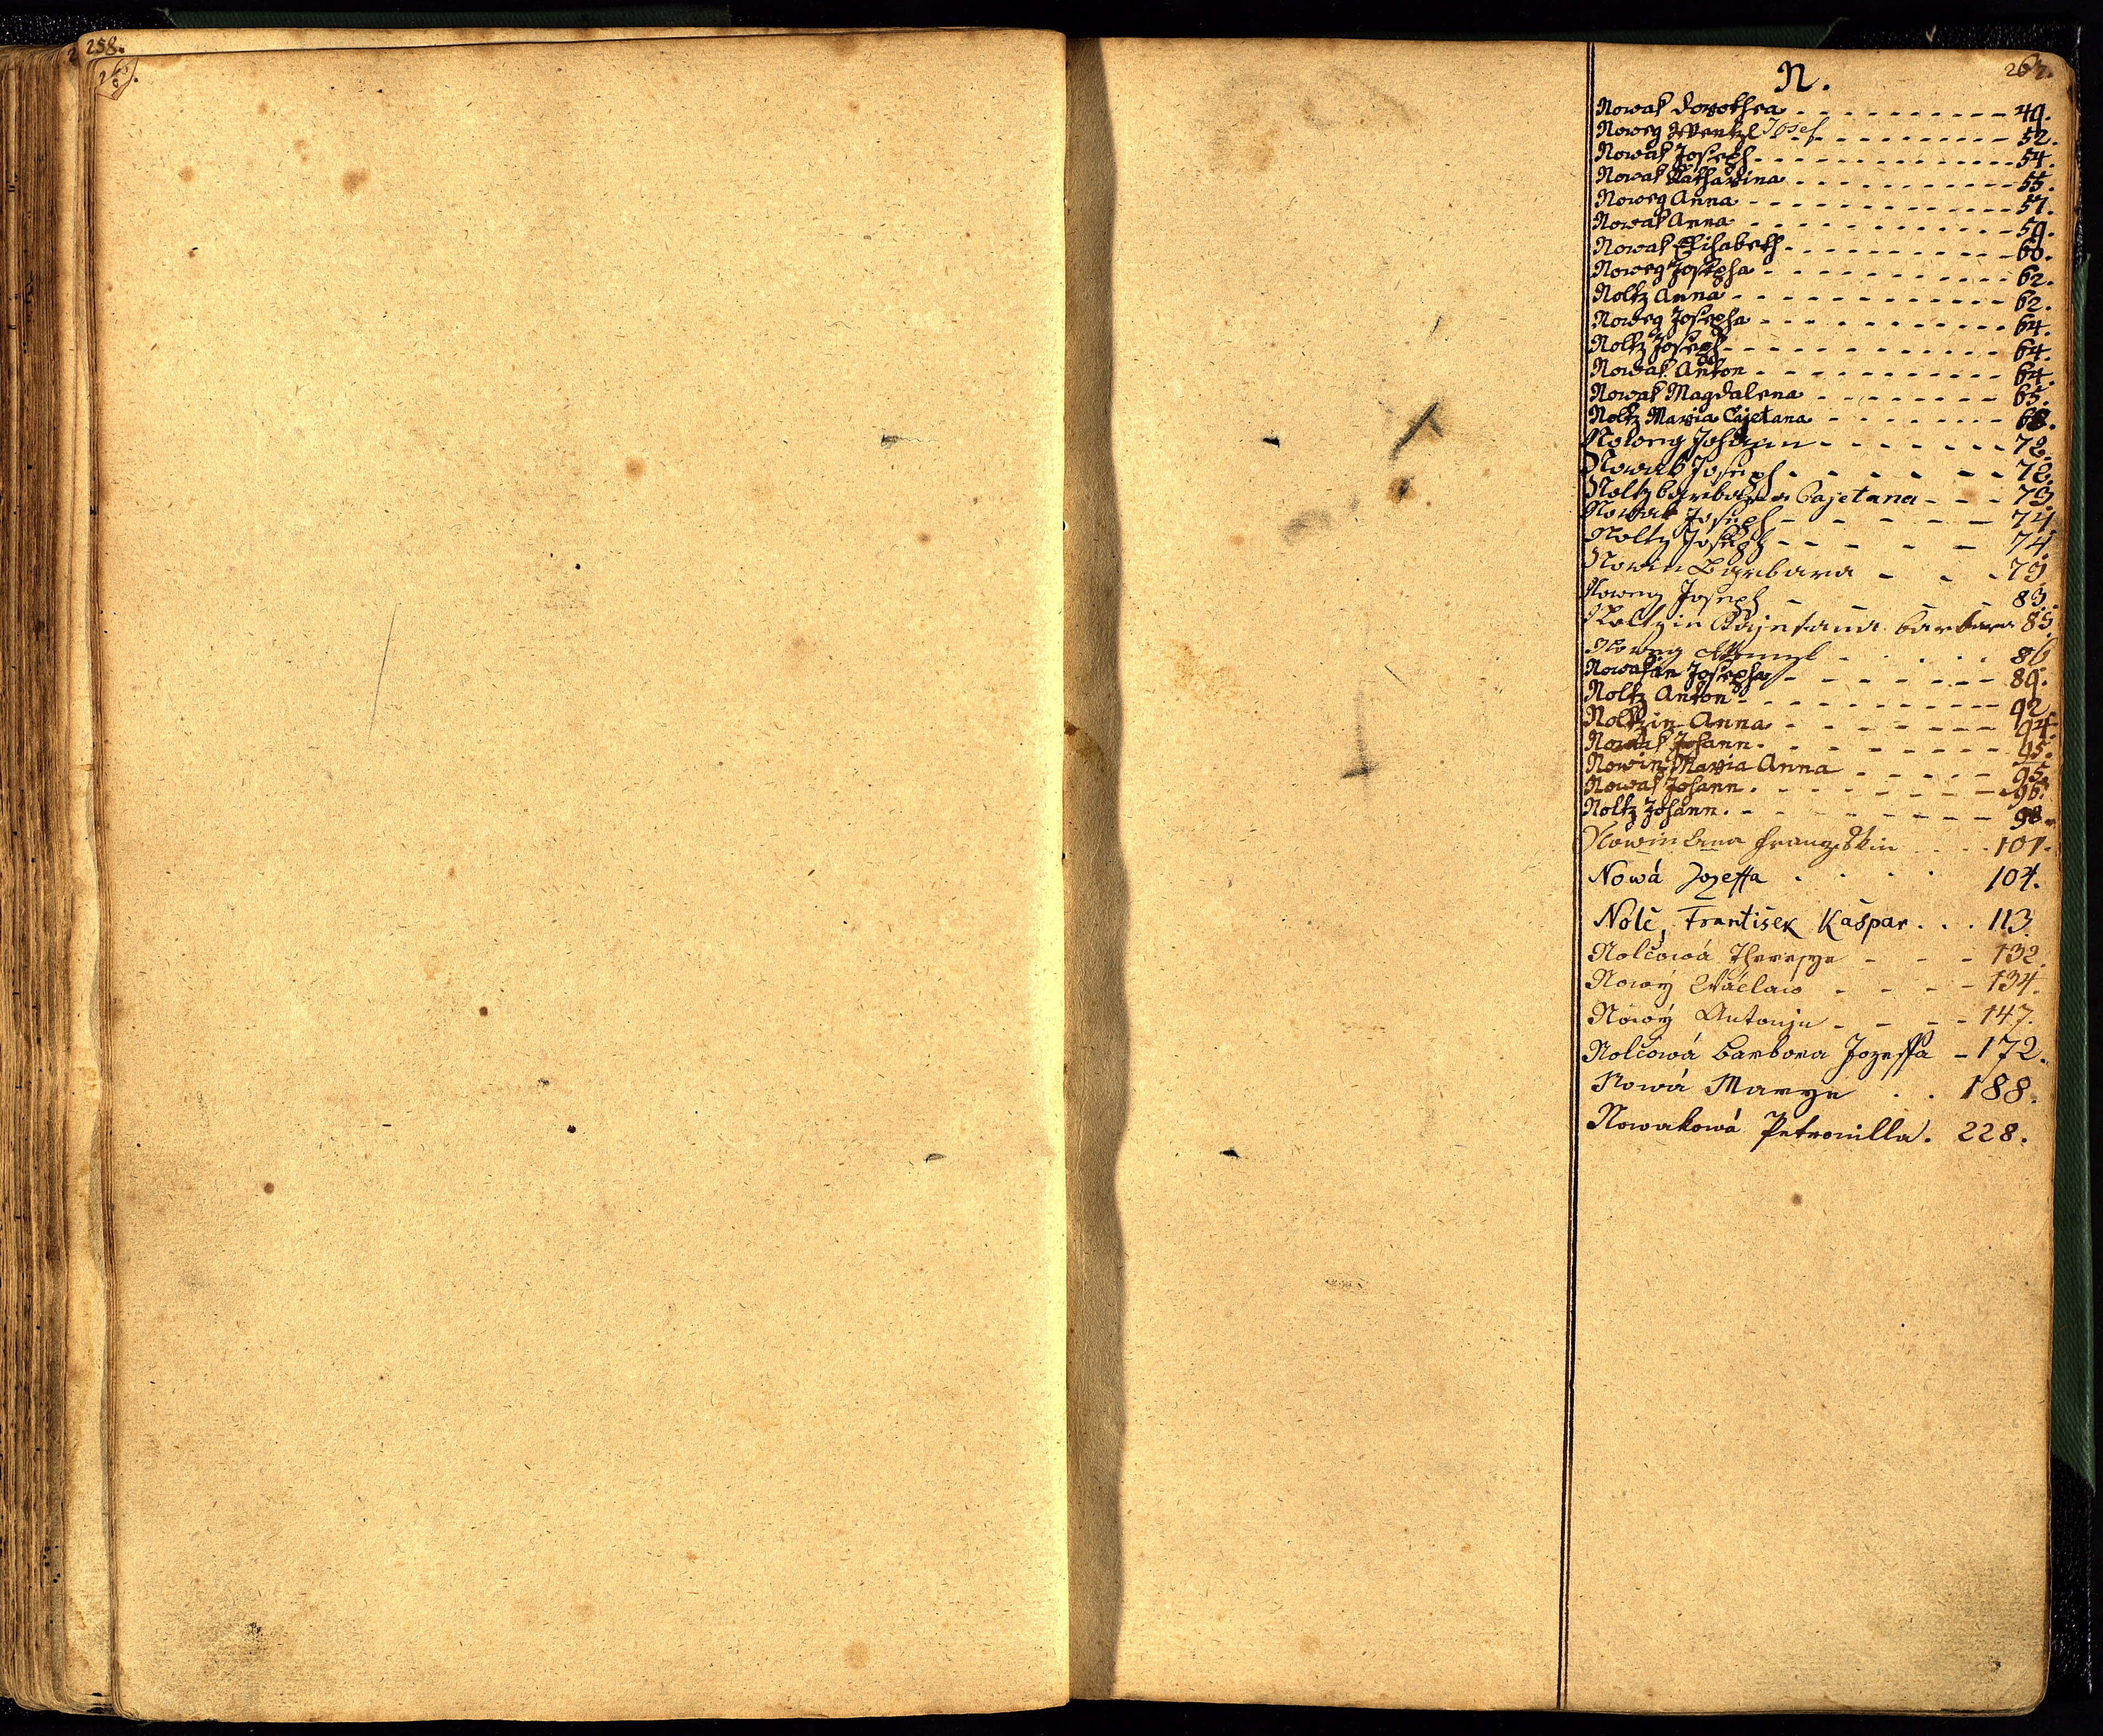 258.
267.
N.
Nowak Dorothea - - - - - - - - - - 49.
Noweg Wentzl Josef - - - - - - - - - 52.
Nowak Joseph - - - - - - - - - - - - - 54.
Nowak Katharina - - - - - - - - - - - 55.
Noweg Anna - - - - - - - - - - - - - 57.
Nowak Anna - - - - - - - - - - - - - 59.
Nowak Elisabeth - - - - - - - - - - - 60.
Noweg Josepha - - - - - - - - - - - - 62.
Noltz Anna - - - - - - - - - - - - - 62.
Noweg Josepha - - - - - - - - - - - - 64.
Noltz Joseph - - - - - - - - - - - - - 64.
Nowak Anton - - - - - - - - - - - - 64.
Nowak Magdalena - - - - - - - - 65.
Noltz Maria Cajetana - - - - - - - 68.
Noweg Johann - - - - - - - 72.
Nowak Joseph - - - - - - - 72.
Noltz Barbara Cajetana - - - 73.
Nowak Joseph - - - - - - 74.
Noltz Joseph - - - - - - 74.
Nowin Barbara - - - 79.
Noweg Joseph - - - - 83.
Noltzin Cajetana Barbara 85.
Noweg Wenzl - - - - - 86
Nowakin Josepha - - - - - - - 89.
Noltz Anton - - - - - - - - - - 92.
Noltzin Anna - - - - - - - - 94.
Nowak Johann - - - - - - - - 95.
Nowin Maria Anna - - - - - 95.
Nowak Johann - - - - - - - - - 96.
Noltz Johann - - - - - - - - - 98.
Nowin Anna Franziskin . . . 101.
Nowá Jozeffa . . . . 104.
Nolč, František Kašpar . . . 113.
Nolčowá Theresye - - - 132.
Nowý Wáclaw - - - - 134.
Nowý Antonjn - - - - 147.
Nolčowá Barbora Jozeffa - 172.
Nowá Marye . . 188.
Nowakowá Petronilla. 228.